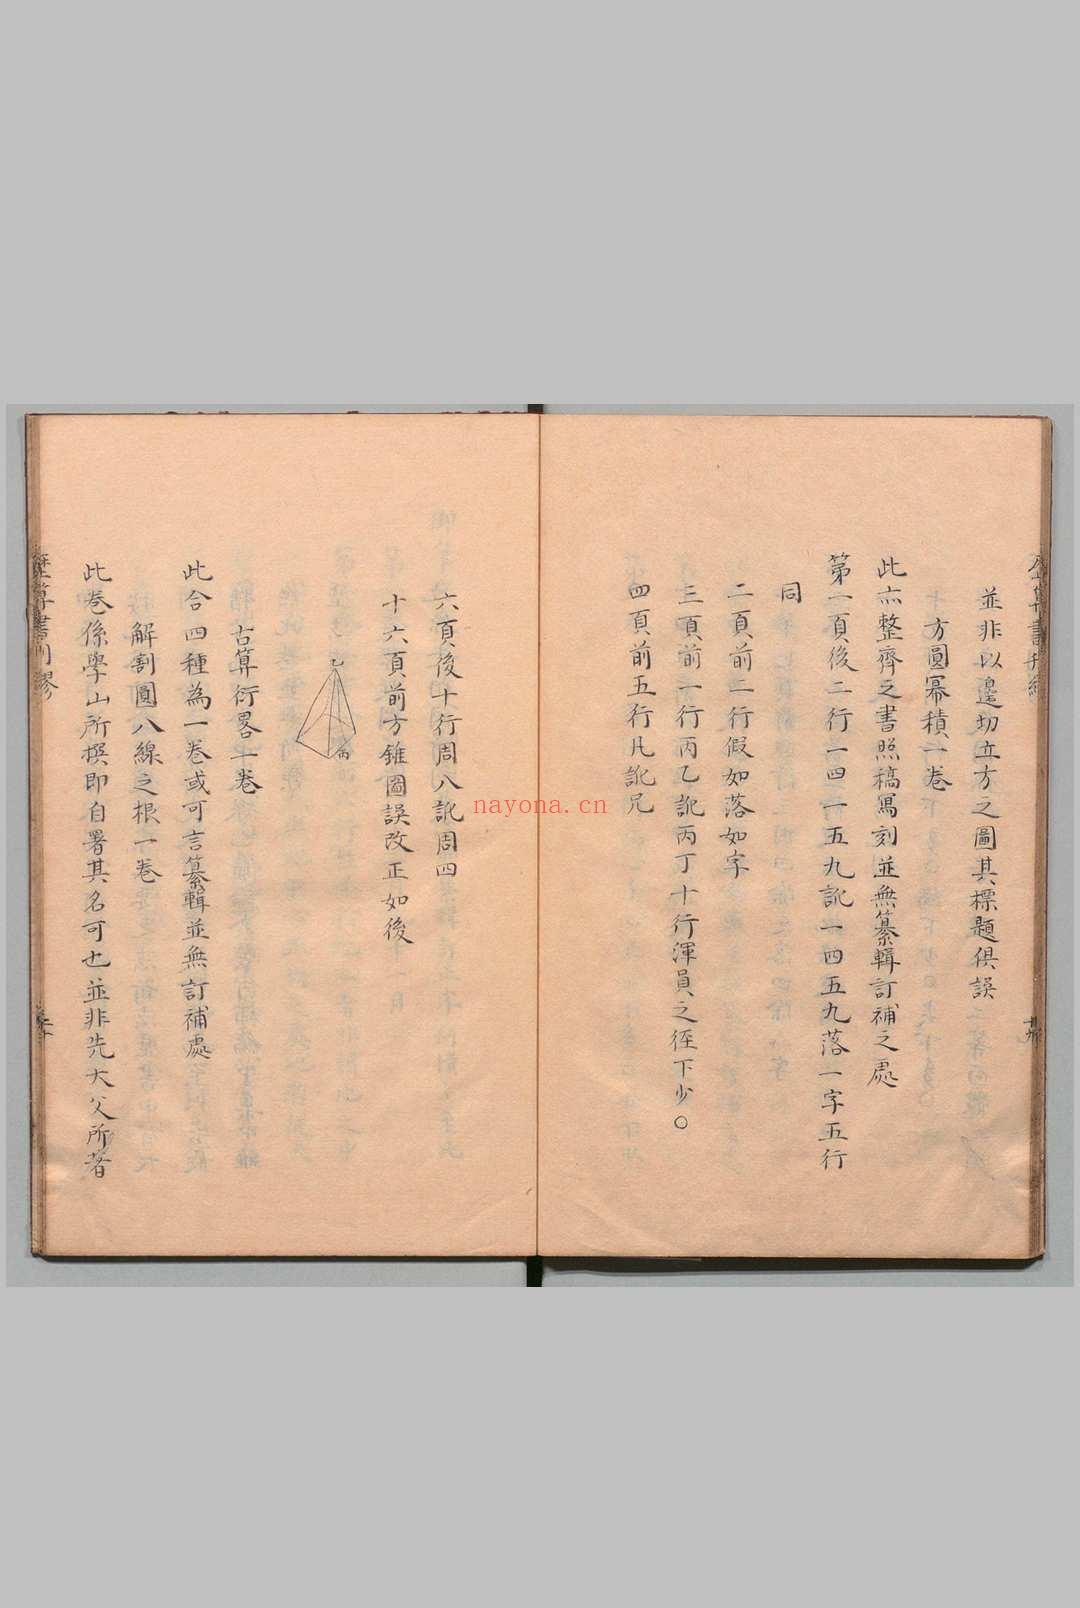 並非以邊切立方之圖其標題俱誤
方圓冪積一卷
此亦整齊之書照稿寫刻並無纂輯訂補之處
第一頁後二行一四一五九訛一四五九落一字五行
同
二頁前二行假如落如字
三頁前一行丙乙訛丙丁十行渾員之徑下少〇
四頁前五行凡訛兄
六頁後十行周八訛周四
十六頁前方錐圖誤改正如後
乙
丙
古算衍畧一卷
此合四種為一卷或可言纂輯並無訂補處
解割圓八線之根一卷
此卷係學山所撰即自署其名可也並非先大父所著
歷算書刊繆
nayona.cn